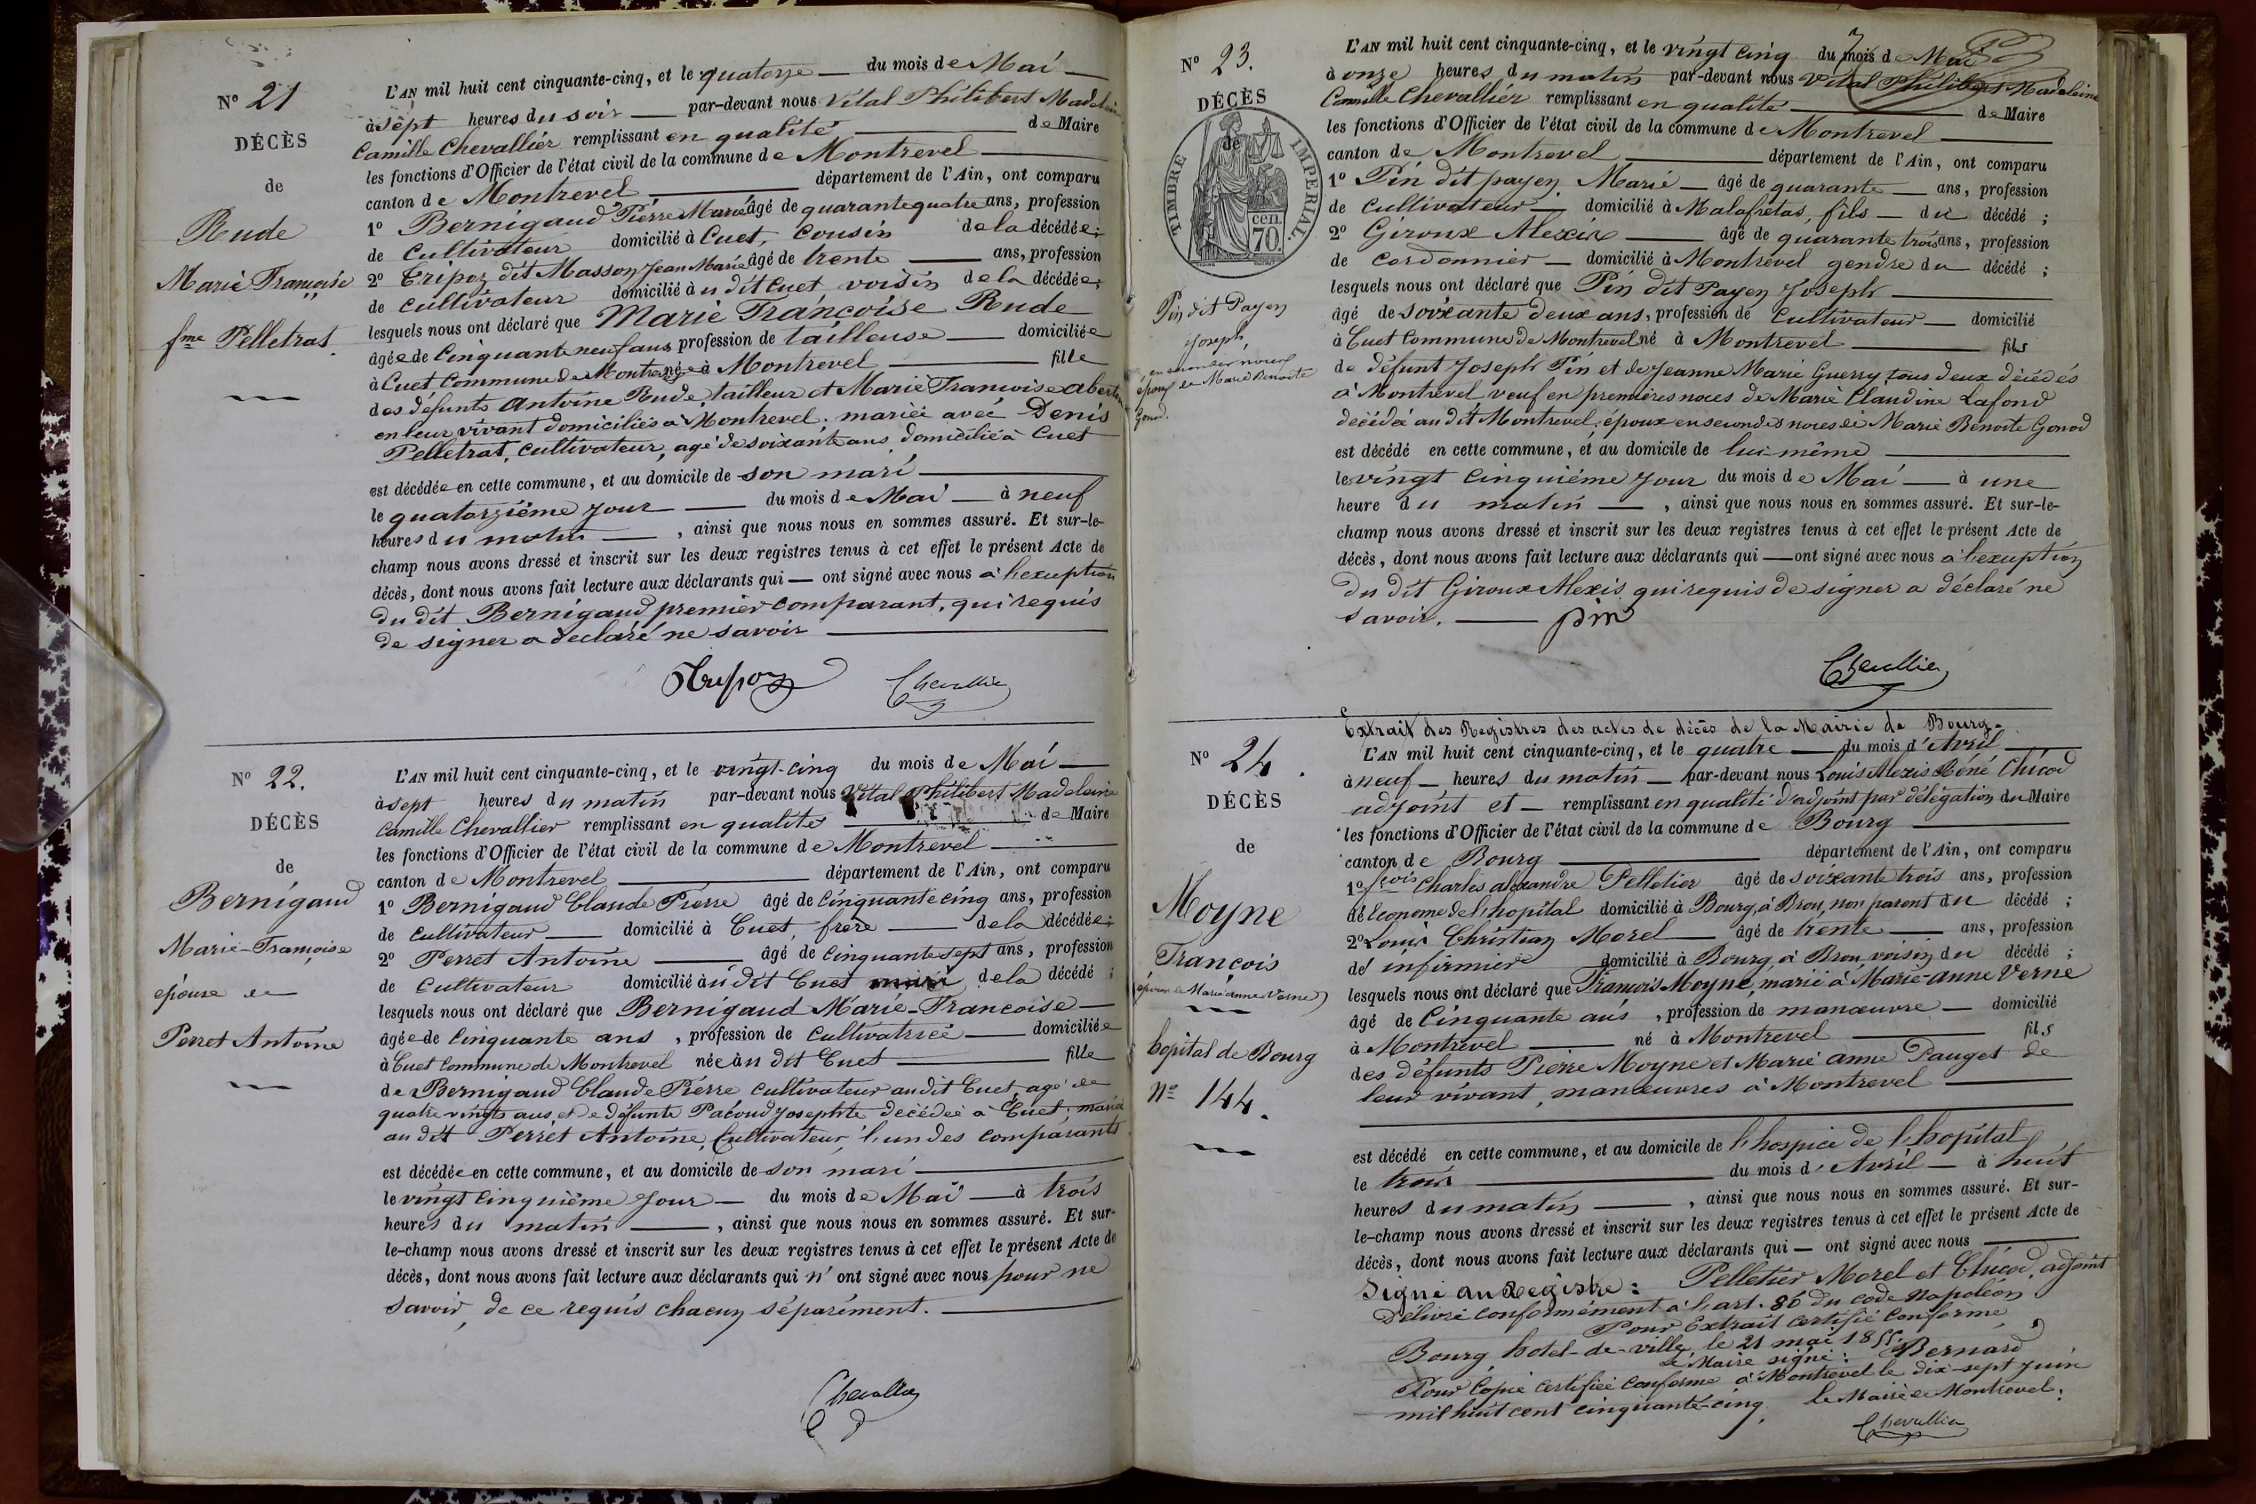 N° 21
DÉCÈS
de
Rude
Marie Françoise
fme Pelletrat
L'AN mil huit cent cinquante-cinq, et le quatorze du mois de Mai
à sept heures du soir par-devant nous Vital Philibert Madeleine
Camille Chevallier remplissant en qualité de Maire
les fonctions d'Officier de l'état civil de la commune de Montrevel
canton de Montrevel département de l'Ain, ont comparu
1° Bernigaud Pierre Marie âgé de quarante quatre ans, profession
de cultivateur domicilié à Cuet, cousin de la décédée;
2° Tripoz dit Masson Jean Marie âgé de trente ans, profession
de cultivateur domicilié au dit Cuet voisin de la décédée;
lesquels nous ont déclaré que Marie Françoise Rude
âgée de Cinquante neuf ans profession de tailleuse domiciliée
à Cuet Commune de Montrevel née à Montrevel fille
des défunts Antoine Rude, tailleur et Marie Françoise
en leur vivant domiciliés à Montrevel. mariée avec Denis
Pelletrat, cultivateur, agé de soixante ans domicilié à Cuet
est décédée en cette commune, et au domicile de son mari
le quatorzième jour du mois de Mai à neuf
heures du matin, ainsi que nous nous en sommes assuré. Et sur-le-
champ nous avons dressé et inscrit sur les deux registres tenus à cet effet le présent Acte de
décès, dont nous avons fait lecture aux déclarants qui — ont signé avec nous à l'exception
du dit Bernigaud premier comparant, qui requis
de signer a déclaré ne savoir
Tripoz Chevallier
N° 22.
DÉCÈS
de
Bernigaud
Marie-Françoise
épouse de
Perret Antoine
L'AN mil huit cent cinquante-cinq, et le vingt-cinq du mois de Mai
à sept heures du matin par-devant nous Vital Philibert Madeleine
Camille Chevallier remplissant en qualité de Maire
les fonctions d'Officier de l'état civil de la commune de Montrevel
canton de Montrevel département de l'Ain, ont comparu
1° Bernigaud Claude Pierre âgé de Cinquante cinq ans, profession
de cultivateur domicilié à Cuet, frère de la décédée;
2° Perret Antoine âgé de Cinquante sept ans, profession
de cultivateur domicilié au dit Cuet mari de la décédé;
lesquels nous ont déclaré que Bernigaud Marie-Françoise
âgée de Cinquante ans, profession de cultivatrice domiciliée
à Cuet Commune de Montrevel née au dit Cuet fille
de Bernigaud Claude Pierre cultivateur au dit Cuet, agé de
quatre vingts ans et de défunte Pacoud Josephte décédée à Cuet; mariée
au dit Perret Antoine, Cultivateur, l'un des comparants
est décédée en cette commune, et au domicile de son mari
le vingt cinquième jour du mois de Mai à trois
heures du matin, ainsi que nous nous en sommes assuré. Et sur-
le-champ nous avons dressé et inscrit sur les deux registres tenus à cet effet le présent Acte de
décès, dont nous avons fait lecture aux déclarants qui n'ont signé avec nous pour ne
savoir, de ce requis chacun séparément.
Chevallier
N° 23.
DÉCÈS
de
TIMBRE IMPERIAL
70 cen.
Pin dit Payen
Joseph,
époux de Marie Benoite
Gonod.
L'AN mil huit cent cinquante-cinq, et le vingt cinq du mois de Mai
à onze heures du matin par-devant nous Vital Philibert Madeleine
Camille Chevallier remplissant en qualité de Maire
les fonctions d'Officier de l'état civil de la commune de Montrevel
canton de Montrevel département de l'Ain, ont comparu
1° Pin dit payen Marie âgé de quarante ans, profession
de cultivateur domicilié à Malafretas, fils du décédé;
2° Giroux Alexis âgé de quarante trois ans, profession
de cordonnier domicilié à Montrevel gendre du décédé;
lesquels nous ont déclaré que Pin dit Payen Joseph
âgé de soixante deux ans, profession de cultivateur domicilié
à Cuet Commune de Montrevel né à Montrevel fils
de défunt Joseph Pin et de Jeanne Marie Guerry tous deux décédés
à Montrevel veuf en premières noces de Marie Claudine Lafond
décédée au dit Montrevel, époux en secondes noces de Marie Benoite Gonod
est décédé en cette commune, et au domicile de lui-même
le vingt cinquième jour du mois de Mai à une
heure du matin, ainsi que nous nous en sommes assuré. Et sur-le-
champ nous avons dressé et inscrit sur les deux registres tenus à cet effet le présent Acte de
décès, dont nous avons fait lecture aux déclarants qui — ont signé avec nous à l'exception
du dit Giroux Alexis qui requis de signer a déclaré ne
savoir. pin
Chevallier
N° 24.
DÉCÈS
de
Moyne
François
(époux de Marie anne Verne)
hopital de Bourg
N° 144.
Extrait des Registres des actes de décès de la Mairie de Bourg.
L'AN mil huit cent cinquante-cinq, et le quatre du mois d'Avril
à neuf heures du matin par-devant nous Louis Alexis Réné Chicod
adjoint et remplissant en qualité d'adjoint par délégation du Maire
les fonctions d'Officier de l'état civil de la commune de Bourg
canton de Bourg département de l'Ain, ont comparu
1° fçois Charles alexandre Pelletier âgé de soixante trois ans, profession
de Econome de l'hopital domicilié à Bourg, à Brou, non parent du décédé;
2° Louis Christian Morel âgé de trente ans, profession
de infirmier domicilié à Bourg, à Brou voisin du décédé;
lesquels nous ont déclaré que François Moyne, marié à Marie-anne Verne
âgé de Cinquante ans, profession de manœuvre domicilié
à Montrevel né à Montrevel fils
des défunts Pierre Moyne et Marie anne Pauget de
leur vivant, manœuvres à Montrevel
est décédé en cette commune, et au domicile de l'hospice de l'hopital
le trois du mois d'Avril à huit
heures du matin, ainsi que nous nous en sommes assuré. Et sur-
le-champ nous avons dressé et inscrit sur les deux registres tenus à cet effet le présent Acte de
décès, dont nous avons fait lecture aux déclarants qui — ont signé avec nous
Signé au Registre: Pelletier Morel et Chicod, adjoint
Délivré conformément à l'art. 80 du code Napoléon
Pour Extrait certifié conforme
Bourg, hotel-de-ville, le 21 mai 1855.
Le Maire signé: Bernard
Pour Copie certifiée conforme à Montrevel le dix-sept juin
mil huit cent cinquante-cinq. le Maire de Montrevel:
Chevallier